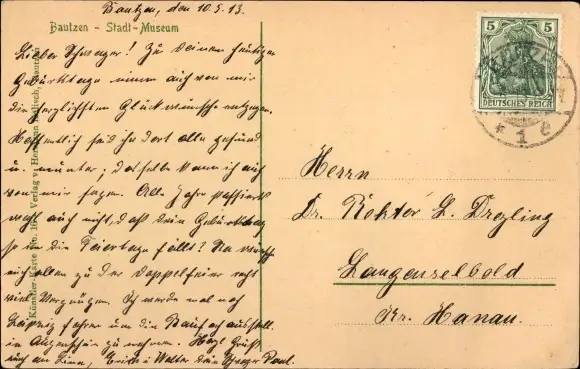 Bautzen, den 10.5.13.
Bautzen - Stadt-Museum
Lieber Schwager! Zu Deinem heutigen
Geburtstage nimm auch von mir
die herzlichsten Glückwünsche entgegen.
Hoffentlich seid ihr dort alle gesund
u. munter; dasselbe kann ich auch
von mir sagen. Alle Jahre passiert
wohl auch nicht, daß dein Geburtstag
so in die Feiertage fällt? Na
allen zu der Doppelfeier recht
viel Vergnügen. Ich werde mal nach
Leipzig fahren um die Baufachausstell.
in Augenschein zu nehmen. Herzl. Gruß
auch an Erich u. Walter dein Schwager Paul.
Künstler-Karte No. Verlag v. Hermann Bautzen
5 5
DEUTSCHES REICH
* 1 c
Herrn
Dr. Rektor L.
Langenselbold
Kr. Hanau.